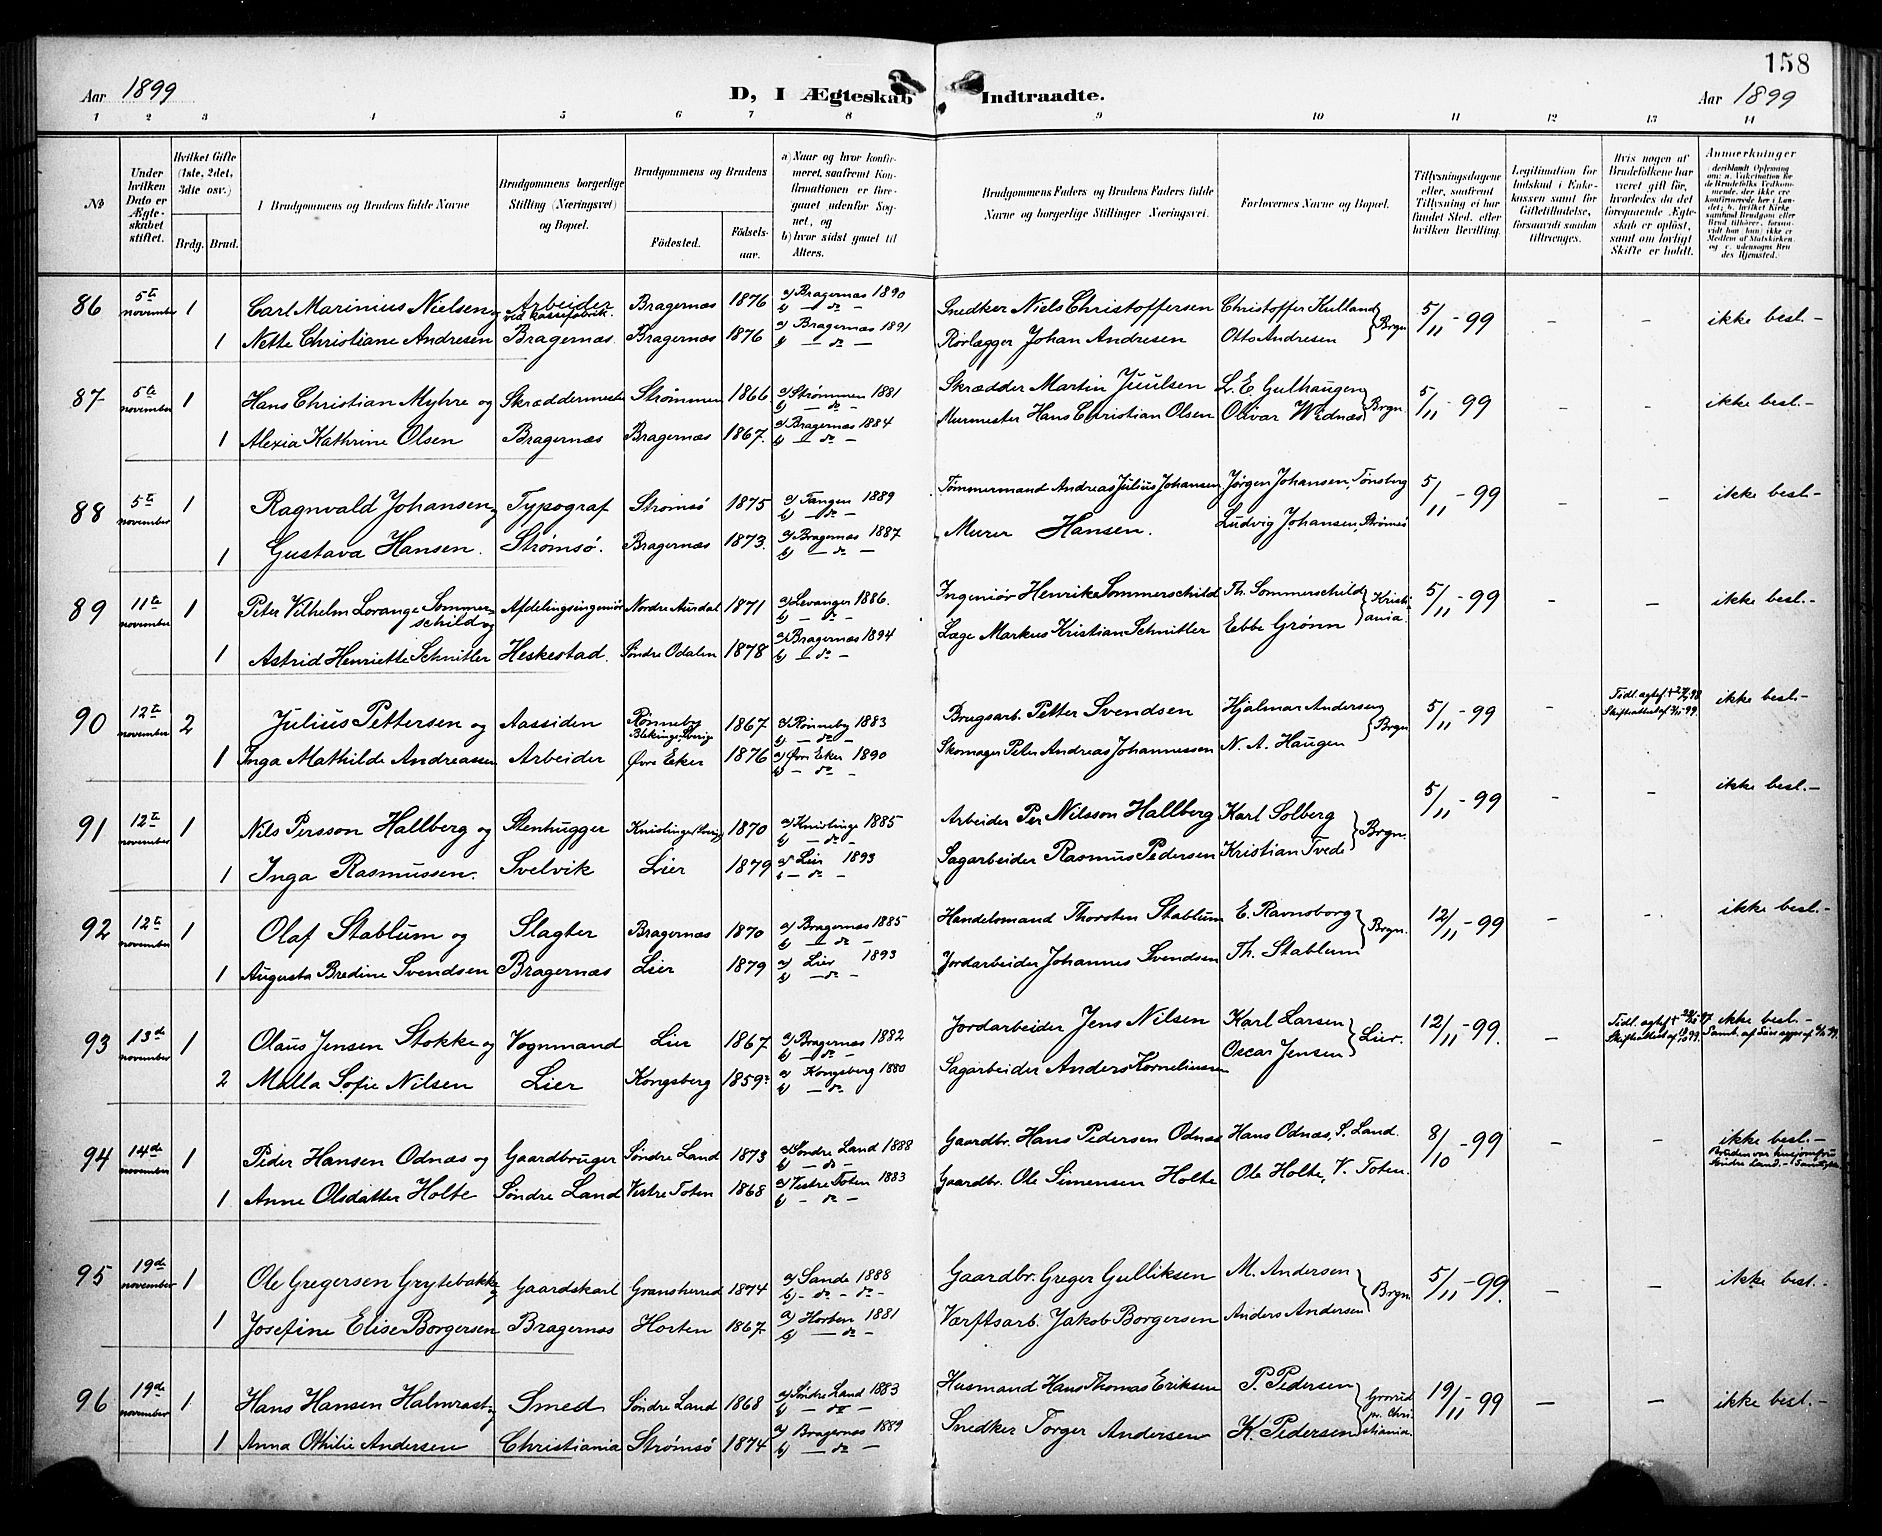 158
Aar 1899
D, I Ægteskab Indtraadte.
Aar 1899
1 2 3 4 5 6 7 8 9 10 11 12 13 14
No
Under hvilken Dato er Ægteskabet stiftet.
Hvilket Gifte (1ste, 2det, 3dte osv.)
Brdg. Brud.
Brudgommens og Brudens fulde Navne
Brudgommens borgerlige Stilling (Næringsvei) og Bopæl.
Brudgommens og Brudens
Födested.
Födselsaar.
a) Naar og hvor konfirmeret, saafremt Konfirmationen er foregaaet udenfor Sognet, og
b) hvor sidst gaaet til Alters.
Brudgommens Faders og Brudens Faders fulde Navne og borgerlige Stillinger Næringsvei.
Forlovernes Navne og Bopæl.
Tillysningsdagene eller, saafremt Tillysning ei har fundet Sted, efter hvilken Bevilling.
Legitimation for Indskud i Enkekassen samt for Giftetilladelse, forsaavidt saadan tiltrænges.
Hvis nogen af Brudefolkene har været gift før, hvorledes da det foregaaende Ægteskab er opløst, samt om lovligt Skifte er holdt.
Anmærkninger
86 5te november 1 Carl Marinius Nielsen og Arbeider ved kassefabrik. Bragernæs 1876 a) Bragernæs 1890 b) — do — Snedker Niels Christoffersen Christoffer Kulland 5/11-99 – – ikke besl.-
1 Nette Christiane Andresen Bragernæs. Bragernæs 1876 a) Bragernæs 1891 b) — do — Rørlægger Johan Andresen Otto Andresen } Brgn
87 5te november 1 Hans Christian Myhre og Skræddermester Strømmen 1866 a) Strømmen 1881 b) — do — Skrædder Martin Juulsen L. E. Gulhaugen 5/11-99 – – ikke besl.-
1 Alexia Kathrine Olsen Bragernæs Bragernæs 1867. a) Bragernæs 1884 b) — do — Murmester Hans Christian Olsen Olivar Widnæs } Brgn.
88 5te november 1 Ragnvald Johansen og Typograf Strømsö 1875 a) Tangen 1889 b) — do — Tømmermand Andreas Julius Johansen Jørgen Johansen, Tönsberg 5/11-99 – – ikke besl.-
1 Gustava Hansen. Strømsö. Bragernæs 1873. a) Bragernæs 1887 b) — do — Murer Hansen. Ludvig Johansen, Strømsö
89 11te november 1 Peter Vilhelm Lorange Sommerschild og Afdelingsingeniör Nordre Aurdal 1871 a) Levanger 1886. b) — do — Ingeniör Henrik Sommerschild Th. Sommerschild 5/11-99 – – ikke besl.-
1 Astrid Henriette Schnitler Heskestad. Søndre Odalen 1878 a) Bragernæs 1894 b) — do — Læge Markus Kristian Schnitler Ebbe Grönn } Kristiania.
90 12te november 2 Julius Pettersen og Aassiden Rönneby Blekinge Sverige 1867 a) Rönneby 1883 b) — do — Brugsarb. Petter Svendsen Hjalmar Andersen 5/11-99 – ikke besl.-
1 Inga Mathilde Andreassen Arbeider Øvre Eeker 1876 a) Øvre Eker 1890 b) — do — Skomager Peter Andreas Johannessen N. A. Haugen } Brgn
91 12te november 1 Nils Persson Hallberg og Stenhugger Knislinge 1870 a) Knislinge 1885 b) — do — Arbeider Per Nilsson Hallberg Karl Solberg 5/11-99 – – ikke besl.-
1 Inga Rasmussen. Svelvik Lier 1879 a) Lier 1893 b) — do — Sagarbeider Rasmus Pedersen Kristian Tvede } Brgn.
92 12te november 1 Olaf Stablum og Slagter Bragernæs 1870 a) Bragernæs 1885 b) — do — Handelsmand Thorsten Stablum E. Ravnsborg 12/11-99 – – ikke besl.-
1 Augusta Bredine Svendsen Bragernæs Lier 1879 a) Lier 1893 b) — do — Jordarbeider Johannes Svendsen Th. Stablum } Brgn.
93 13de november 1 Olaus Jensen Stokke og Vognmand Lier 1867 a) Bragernæs 1882 b) — do — Jordarbeider Jens Nilsen Karl Larsen 12/11-99. – ikke besl.-
2 Malla Sofie Nilsen Lier Kongsberg 1859. a) Kongsberg 1880 b) — do Sagarbeider Anders Korneliussen Oscar Jensen } Lier.
94 14de november 1 Peder Hansen Odnæs og Gaardbruger Søndre Land 1873 a) Søndre Land 1888 b) — do — Gaardbr. Hans Pedersen Odnæs Hans Odnæs, S. Land. 8/10-99 – – ikke besl.-
1 Anne Olsdatter Holte Søndre Land Vestre Toten 1868 a) Vestre Toten 1883 b) — do — Gaardbr. Ole Simensen Holte Ole Holte, V. Toten.
95 19de november 1 Ole Gregersen Grytebakke og Gaardskarl Gransherred 1874 a) Sande 1888 b) – do – do – Gaardbr. Greger Gulliksen M. Andersen 5/11-99. – – ikke besl.-
1 Josefine Elise Borgersen Bragernæs Horten 1867 a) Horten 1881 b) — do — Værftsarb. Jakob Borgersen Anders Andersen } Brgn
96 19de november 1 Hans Hansen Halmrast og Smed Söndre Land 1868 a) Söndre Land 1883 b) — do — Husmand Hans Thomas Eriksen P. Pedersen 19/11-99 – – ikke besl.-
1 Anna Othilie Andersen Christiania Strømsö 1874 a) Bragernæs 1889 b) — do — Snedker Torger Andersen K. Pedersen } Grorud pr. Christiania